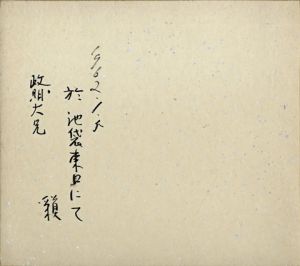 1962.1.5
於 池袋東口にて
政明大兄